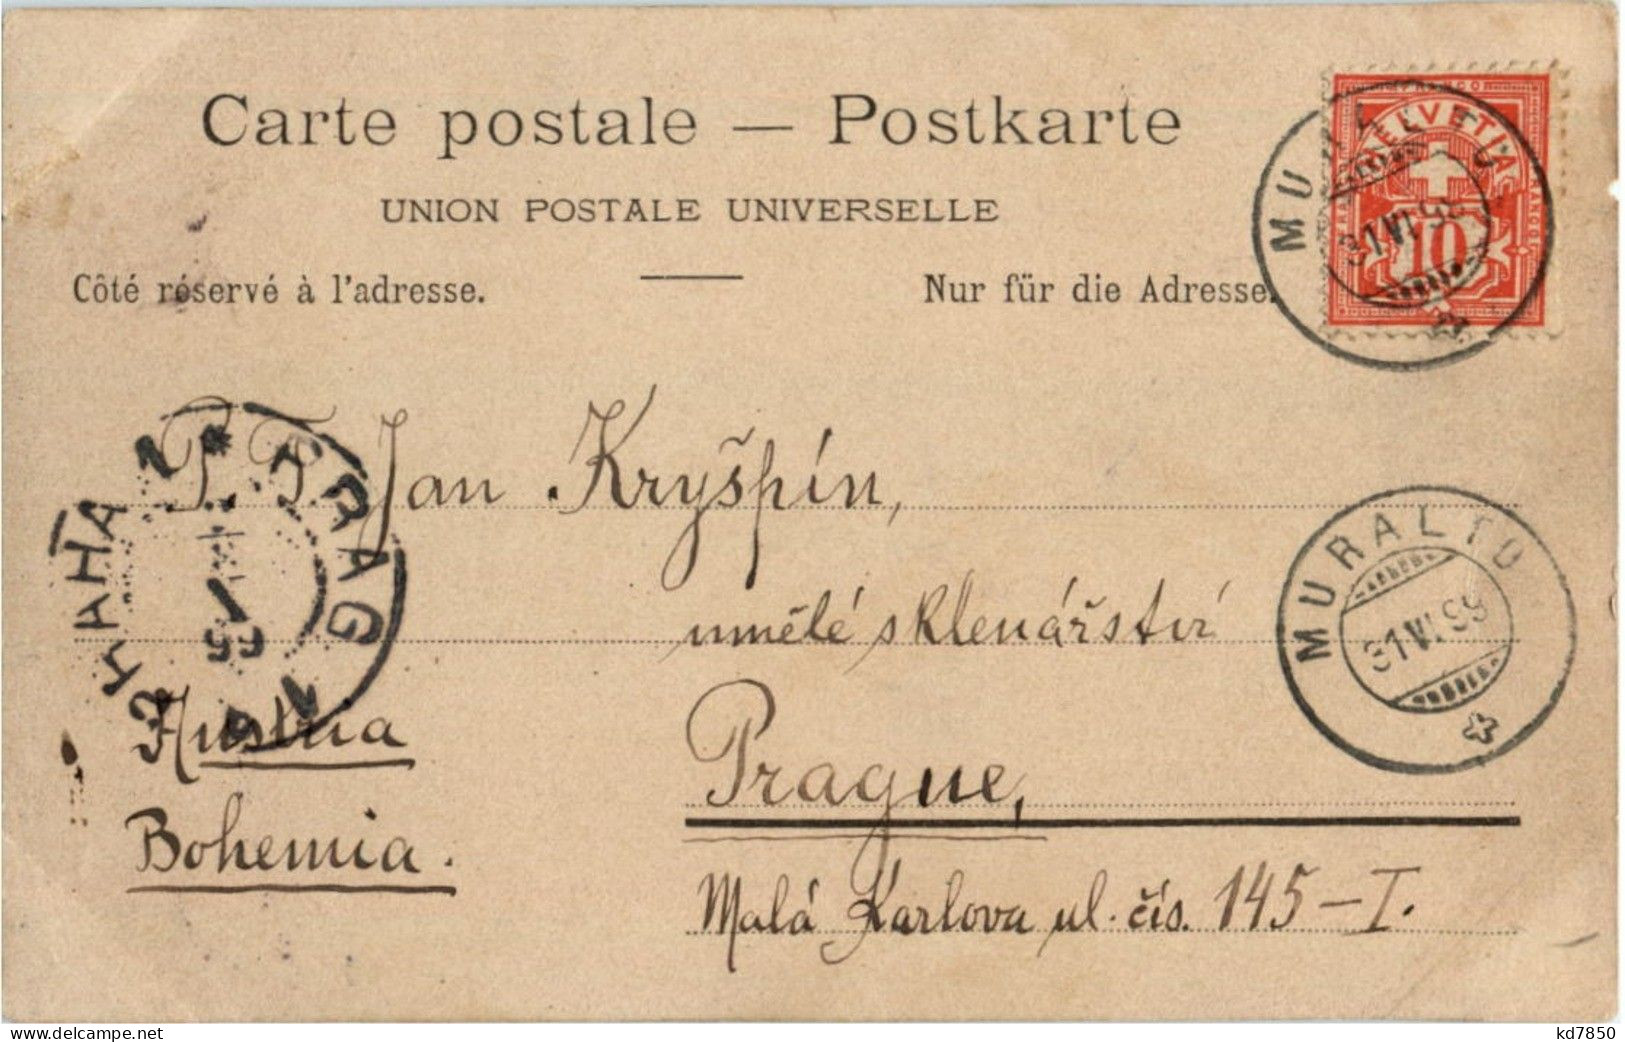 Carte postale — Postkarte
UNION POSTALE UNIVERSELLE
Côté réservé à l'adresse.
Nur für die Adresse.
FRANCO
HELVETIA
10
MURALTO
P. T. Jan Kryšpín,
umělé sklenářství
Prague,
Malá Karlova ul. čís. 145-I.
Austria
Bohemia.
PRAG 1
PRAHA 1
99
MURALTO
31 VI.99
www.delcampe.net
kd7850